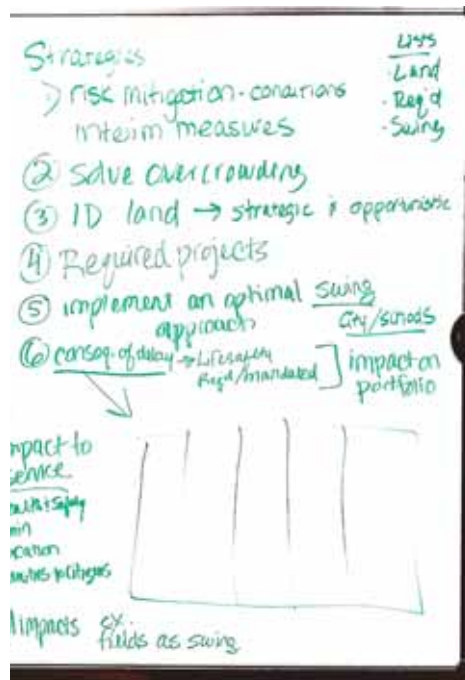 Strategies
1) risk mitigation - conditions
interim measures
Lists
· Land
· Req'd
· Swing
② Solve overcrowding
③ ID land → strategic & opportunistic
④ Required projects
⑤ implement an optimal swing
approach
City/schools
⑥ conseq. of delay → Lifesafety
Req'd/mandated
] impact on
portfolio
mpact to
ervice
ealth + Safety
min
cation
l impacts ex.
fields as swing